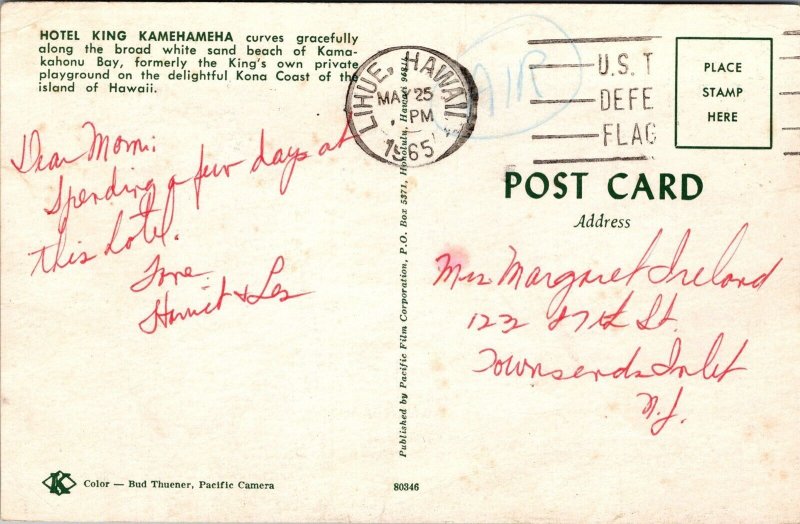 HOTEL KING KAMEHAMEHA curves gracefully
along the broad white sand beach of Kama-
kahonu Bay, formerly the King's own private
playground on the delightful Kona Coast of the
island of Hawaii.
Dear Mom:
Spending a few days at
this hotel.
Love
Harriet & Les
Color — Bud Thuener, Pacific Camera
80346
Published by Pacific Film Corporation, P.O. Box 5371, Honolulu, Hawaii 96814
LIHUE, HAWAII
MAY 25
PM
1965
AIR
U.S. 
DEFE
FLAG
PLACE
STAMP
HERE
POST CARD
Address
Mrs Margaret Ireland
122 87th St.
Townsends Inlet
N.J.
K